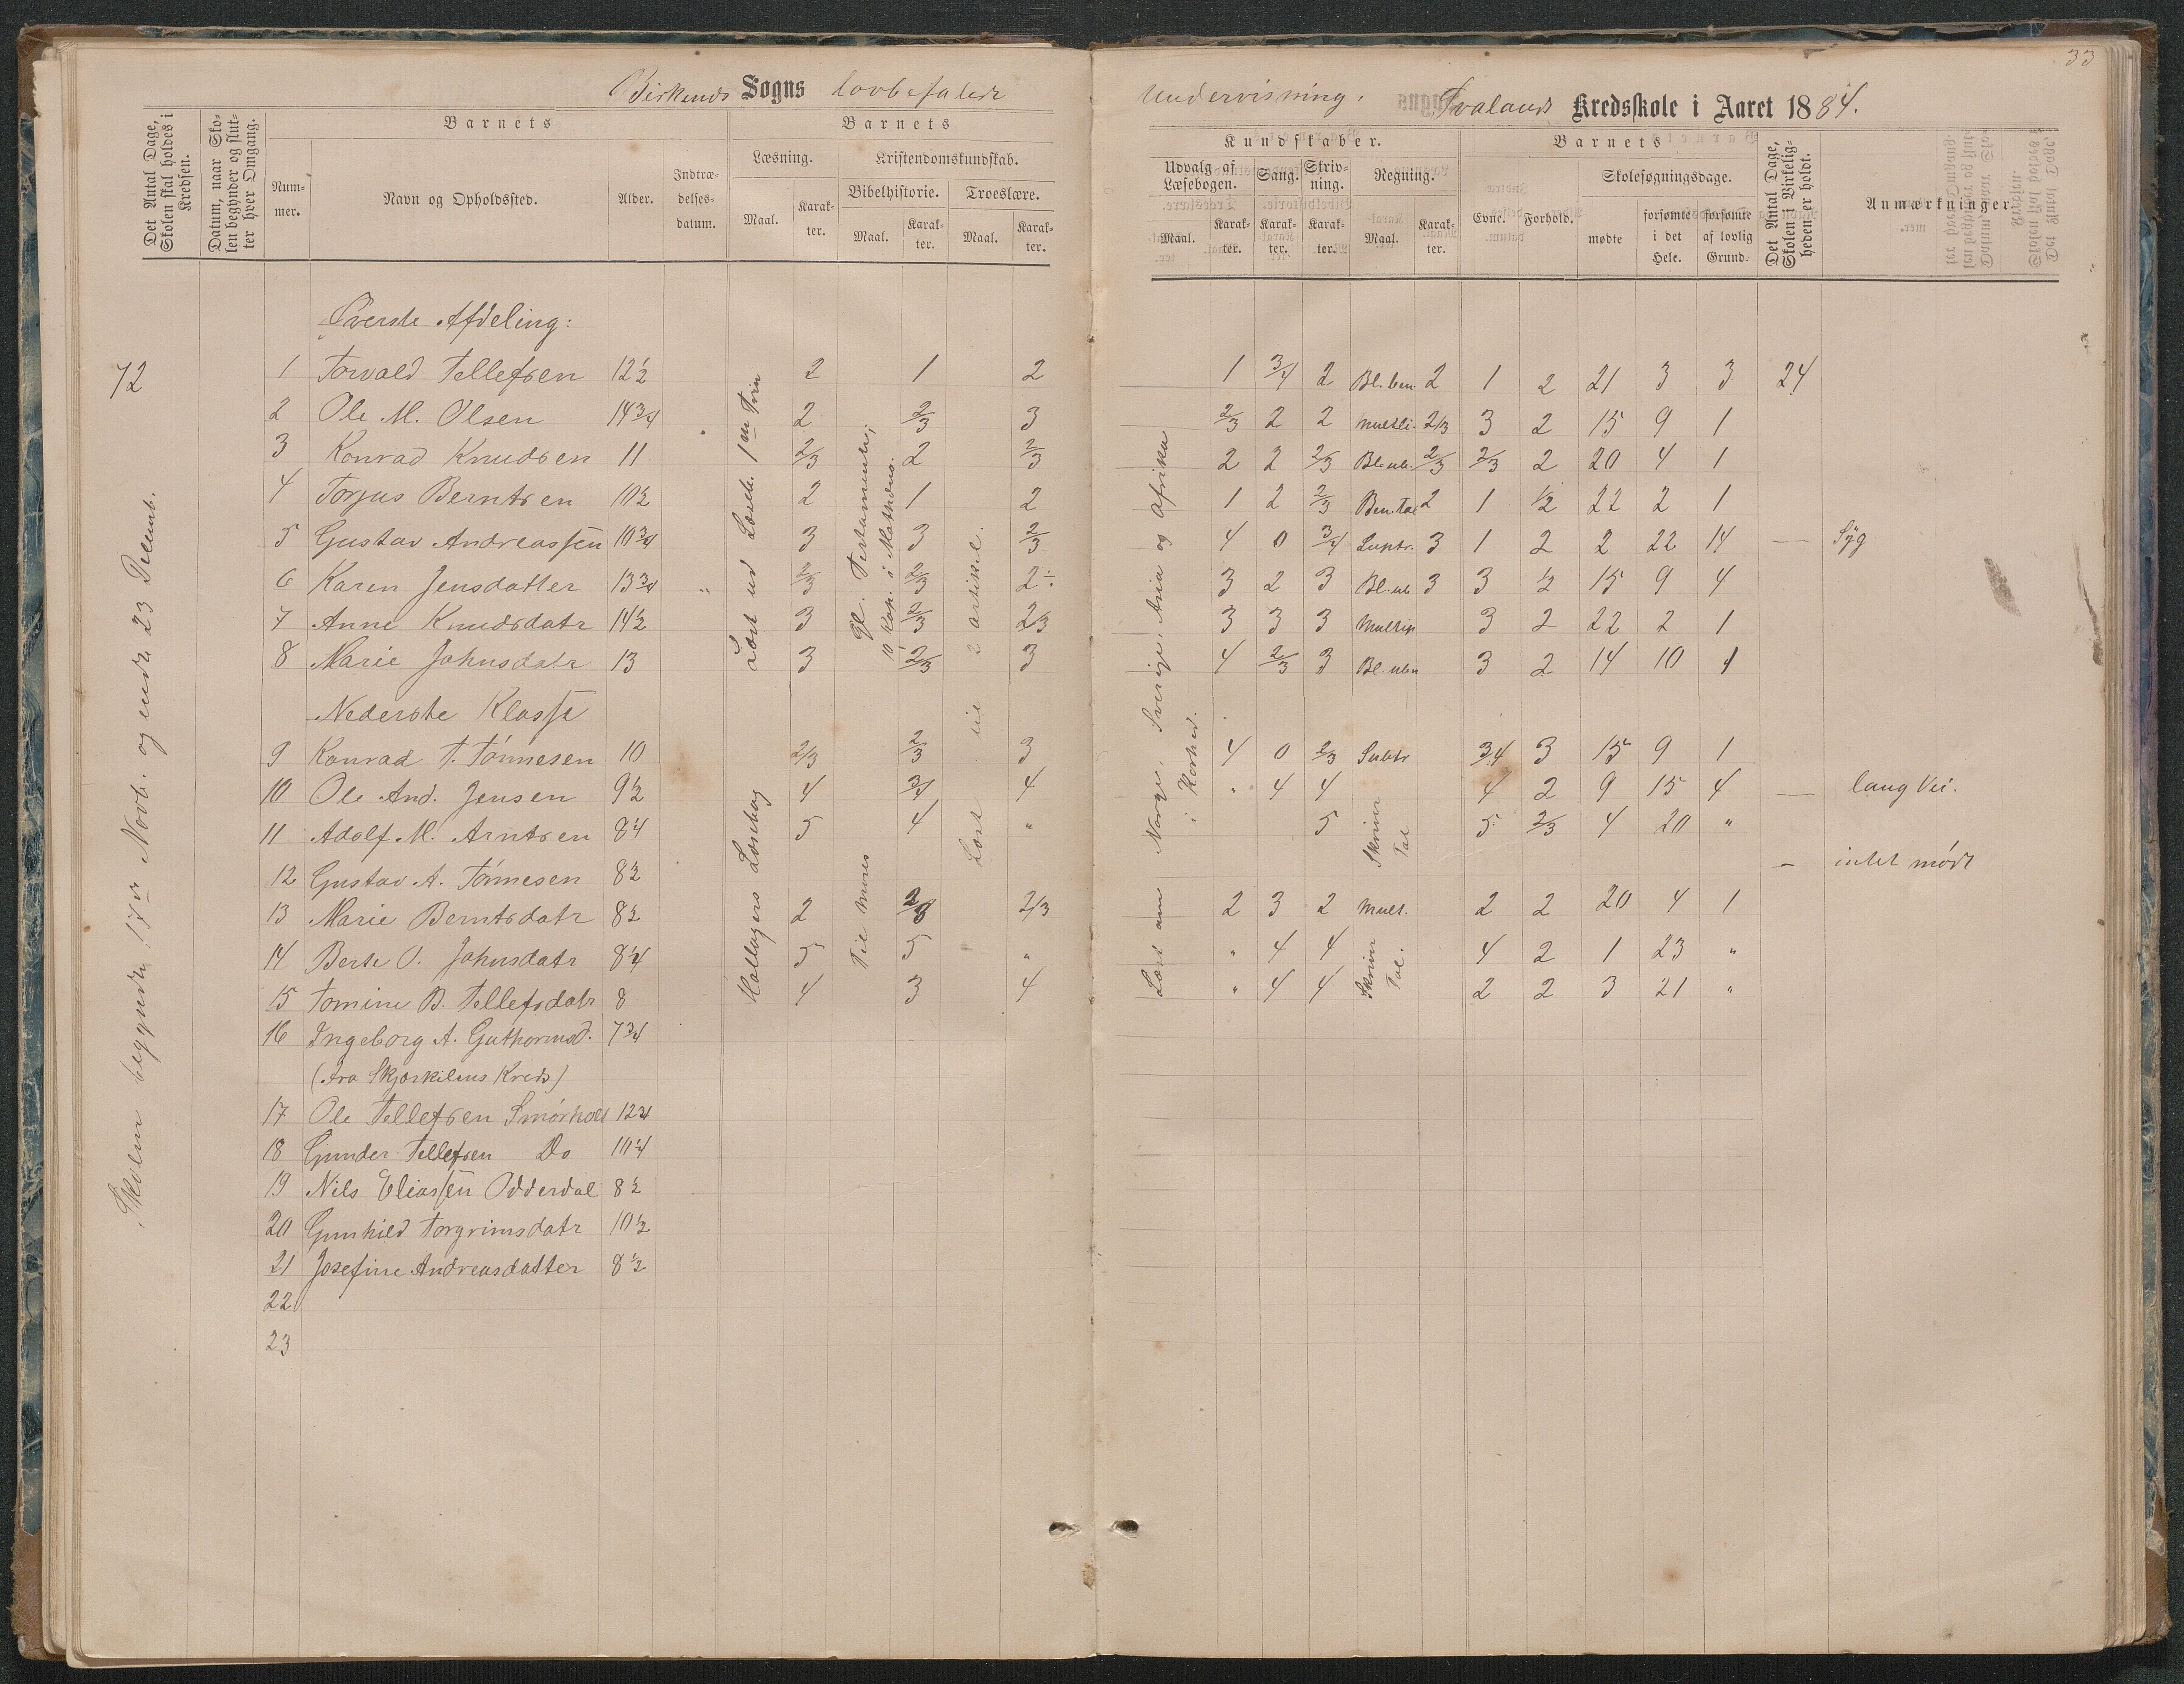 33
Birkenes Sogns lovbefalede Undervisning. Svalands Kredsskole i Aaret 1884.
Det Antal Dage, Skolen skal holdes i Kredsen.
Datum, naar Skolen begynder og slutter hver Omgang.
Barnets
Nummer.
Navn og Opholdssted.
Alder.
Indtrædelsesdatum.
Barnets
Læsning.
Maal.
Karakter.
Kristendomskundskab.
Bibelhistorie.
Maal.
Karakter.
Troeslære.
Maal.
Karakter.
Kundskaber.
Udvalg af Læsebogen.
Maal.
Karakter.
Sang.
Karakter.
Skrivning.
Karakter.
Regning.
Maal.
Karakter.
Barnets
Evne.
Forhold.
Skolesøgningsdage.
mødte
forsømte i det Hele.
forsømte af lovlig Grund.
Det Antal Dage, Skolen i Virkeligheden er holdt.
Anmærkninger.
72
Skolen begyndte 17de Novb. og endte 23 Decemb.
Øverste Afdeling:
1 Torvald Tellefsen 12 1/2 2 1 2 1 3/4 2 2 1 2 21 3 3 24
2 Ole M. Olsen 14 3/4 2 2/3 3 2/3 2 2 Multi. 2/3 3 2 15 9 1
3 Konrad Knudsen 11 2/3 2 2/3 2 2 2/3 2/3 2/3 2 20 4 1
4 Torjus Berntsen 10 1/2 2 1 2 1 2 2/3 2 1 1/2 22 2 1
5 Gustav Andreassen 10 3/4 3 3 2/3 4 0 3/4 3 1 2 2 22 14 — Syg
6 Karen Jensdatter 13 3/4 " 2/3 2/3 2÷ 3 2 3 3 3 1/2 15 9 4
7 Anne Knudsdatr 14 1/2 3 2/3 2/3 3 3 3 Multip 3 2 22 2 1
8 Marie Johnsdatr 13 3 2/3 3 4 2/3 3 3 2 14 10 1
Nederste Klasse
9 Konrad T. Tønnesen 10 2/3 2/3 3 4 0 2/3 Subtr 3/4 3 15 9 1
10 Ole And. Jensen 9 1/2 4 3/4 4 " 4 4 4 2 9 15 4 — lang Vei.
11 Adolf M. Arntsen 8 1/4 5 4 " 5 5 2/3 4 20 "
12 Gustav A. Tønnesen 8 1/2 — intet mødt
13 Marie Berntsdatr 8 1/2 2 2/3 2/3 2 3 2 Mult. 2 2 20 4 1
14 Berte O. Johnsdatr 8 1/4 5 5 " " 4 4 4 2 1 23 "
15 Tomine B. Tellefsdatr 8 4 3 4 " 4 4 2 2 3 21 "
16 Ingeborg A. Guthormsd. 7 3/4
(fra Skjærkilens Kreds)
17 Ole Tellefsen Smørholt 12 3/4
18 Gunder Tellefsen Do 10 1/4
19 Nils Eliassen Odderdal 8 1/2
20 Gunhild Torgrimsdatr 10 1/2
21 Josefine Andreasdatter 8 1/2
22
23
Læst ud Læseb. 1ste Trin
Gl. Testamente;
10 Kap. i Mathæus.
Læst til 2 artikel.
Læst om Norge, Sverige, Asia og Afrika
i Korthed.
Til Moses
Skriver Tal
Skriver Tal.